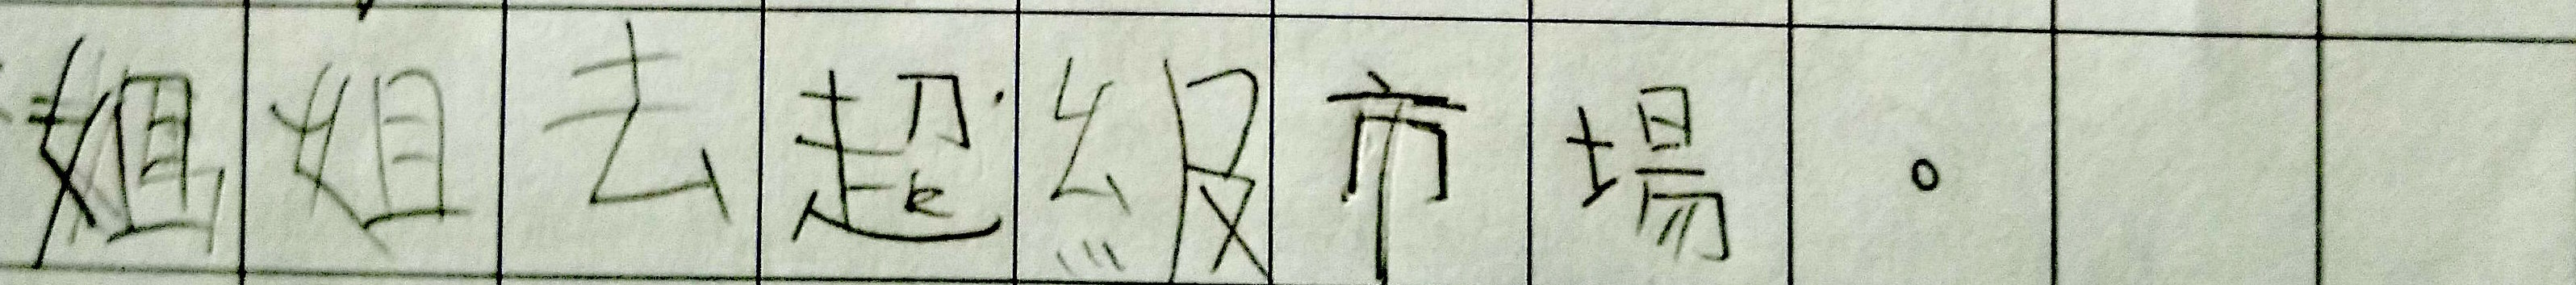 姐姐去超級市場。